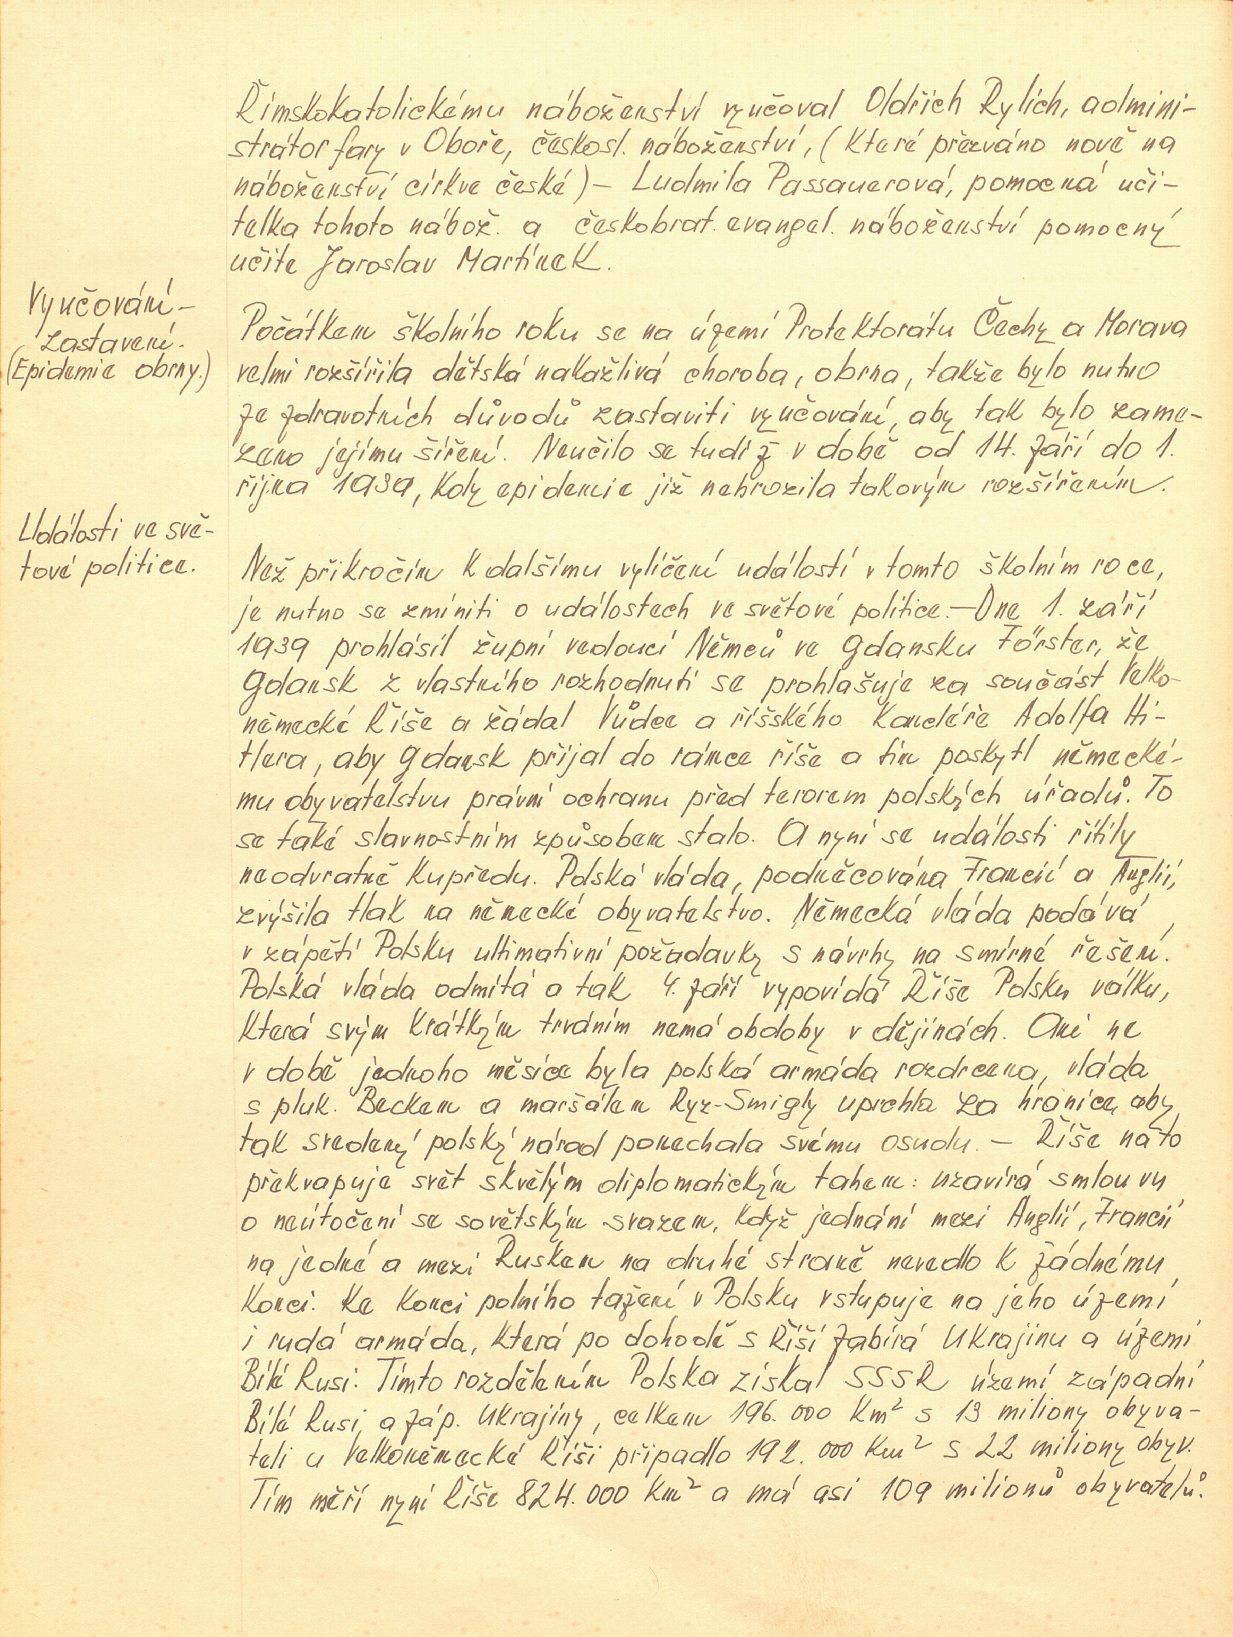 Římskokatolickému náboženství vyučoval Oldřich Rylich, admini-
strátor fary v Oboře, českosl. náboženství, (které přezváno nově na
náboženství církve české) – Ludmila Passauerová, pomocná uči-
telka tohoto nábož. a českobrat. evangel. náboženství pomocný
učite Jaroslav Martínek.
Vyučování –
zastavení.
(Epidemie obrny.)
Počátkem školního roku se na území Protektorátu Čechy a Morava
velmi rozšířila dětská nakažlivá choroba, obrna, takže bylo nutno
ze zdravotních důvodů zastaviti vyučování, aby tak bylo zame-
zeno jejímu šíření. Neučilo se tudíž v době od 14. září do 1.
října 1939, kdy epidemie již nehrozila takovým rozšířením.
Události ve svě-
tové politice.
Než přikročím k dalšímu vylíčení událostí v tomto školním roce,
je nutno se zmíniti o událostech ve světové politice. – Dne 1. září
1939 prohlásil župní vedoucí Němců ve Gdansku Förster, že
Gdansk z vlastního rozhodnutí se prohlašuje za součást Velko-
německé Říše a žádal Vůdce a říšského kancléře Adolfa Hi-
tlera, aby Gdansk přijal do rámce říše a tím poskytl německé-
mu obyvatelstvu právní ochranu před terorem polských úřadů. To
se také slavnostním způsobem stalo. A nyní se události řítily
neodvratně kupředu. Polská vláda, podněcována Francií a Anglií,
zvýšila tlak na německé obyvatelstvo. Německá vláda podává
v zápětí Polsku ultimativní požadavky s návrhy na smírné řešení.
Polská vláda odmítá a tak 4. září vypovídá Říše Polsku válku,
která svým krátkým trváním nemá obdoby v dějinách. Ani ne
v době jednoho měsíce byla polská armáda rozdrcena, vláda
s pluk. Beckem a maršálem Ryz-Smigly uprchla za hranice, aby
tak svedený polský národ ponechala svému osudu. – Říše na to
překvapuje svět skvělým diplomatickým tahem: uzavírá smlouvu
o neútočení se sovětským svazem, když jednání mezi Anglií, Francií
na jedné a mezi Ruskem na druhé straně nevedlo k žádnému
konci. Ke konci polního tažení v Polsku vstupuje na jeho území
i rudá armáda, která po dohodě s Říší zabírá Ukrajinu a území
Bílé Rusi. Tímto rozdělením Polska získal SSSR území západní
Bílé Rusi a záp. Ukrajiny, celkem 196.000 Km² s 13 miliony obyva-
teli a Velkoněmecké Říši připadlo 192.000 Km² s 22 miliony obyv.
Tím měří nyní Říše 824.000 Km² a má asi 109 milionů obyvatelů.